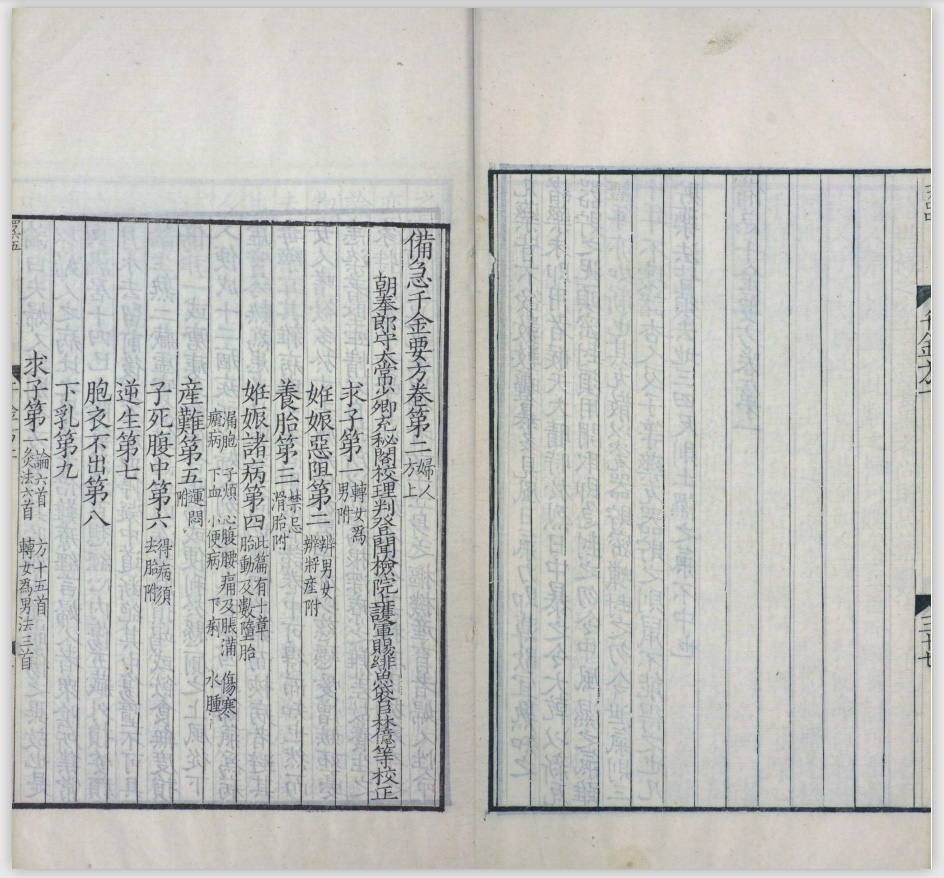 千金方一
三十七
備急千金要方卷第二 婦人方上
朝奉郎守太常少卿充秘閣校理判登聞檢院上護軍賜緋魚袋臣林億等校正
求子第一 轉女爲男附
妊娠惡阻第二 辨男女 辨將産附
養胎第三 禁忌 滑胎附
妊娠諸病第四 此篇有十章 胎動及數墮胎
漏胞 子煩 心腹腰痛及脹滿 傷寒
瘧病 下血 小便病 下痢 水腫
産難第五 運悶附
子死腹中第六 得病須去胎附
逆生第七
胞衣不出第八
下乳第九
求子第一 論六首 方十五首 灸法六首 轉女爲男法三首